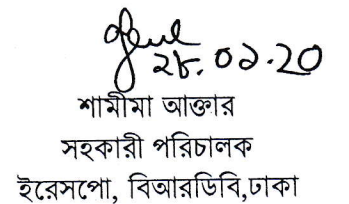 ২৮.০১.২০
শামীমা আক্তার
সহকারী পরিচালক
ইরেসপো, বিআরডিবি,ঢাকা